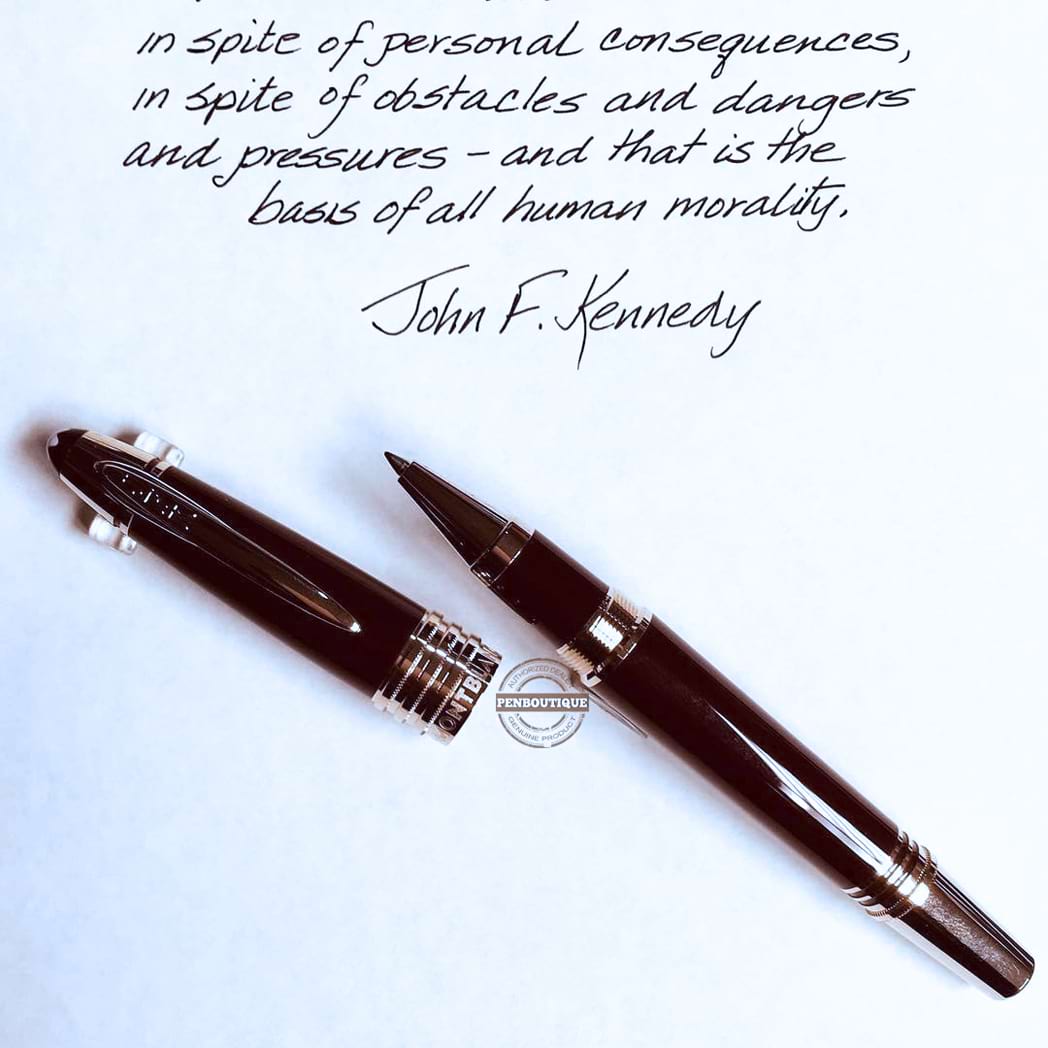 in spite of personal consequences,
in spite of obstacles and dangers
and pressures – and that is the
basis of all human morality.
John F. Kennedy
MONTBLAN
AUTHORIZED DEALER
PENBOUTIQUE
GENUINE PRODUCT